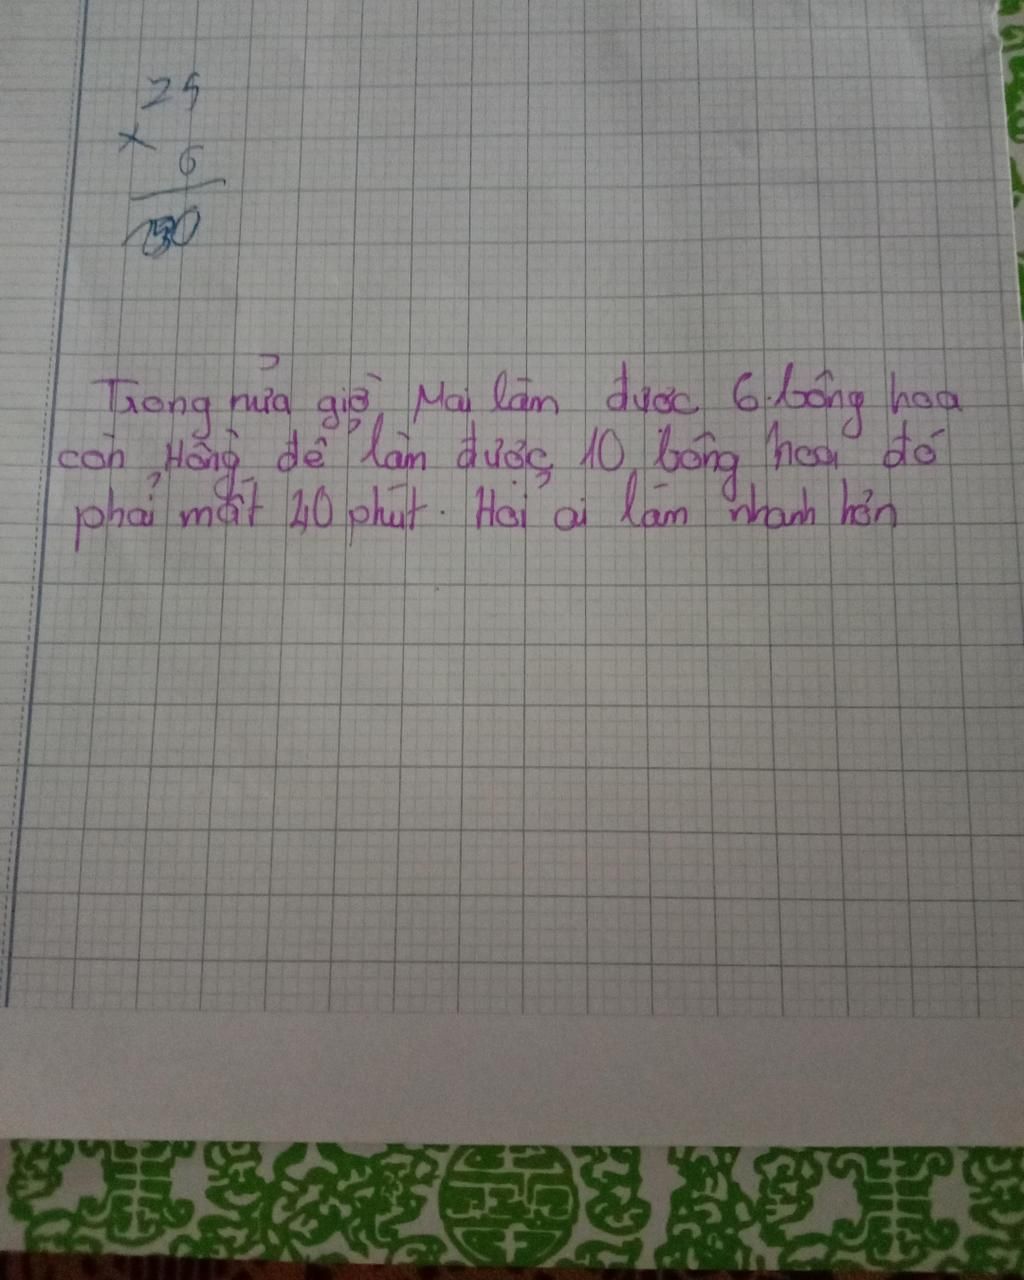 25
×
6
150
Trong nửa giờ, Mai làm được 6 bông hoa
còn Hồng để làm được 10 bông hoa đó
phải mất 40 phút. Hỏi ai làm nhanh hơn